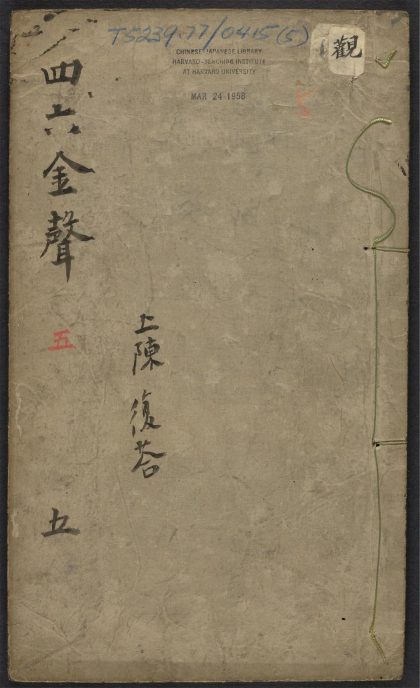 T5239.77/0415(5)
CHINESE-JAPANESE LIBRARY
HARVARD-YENCHING INSTITUTE
AT HARVARD UNIVERSITY
MAR 24 1958
觀
5
四六金聲
五
五
上陳 復荅